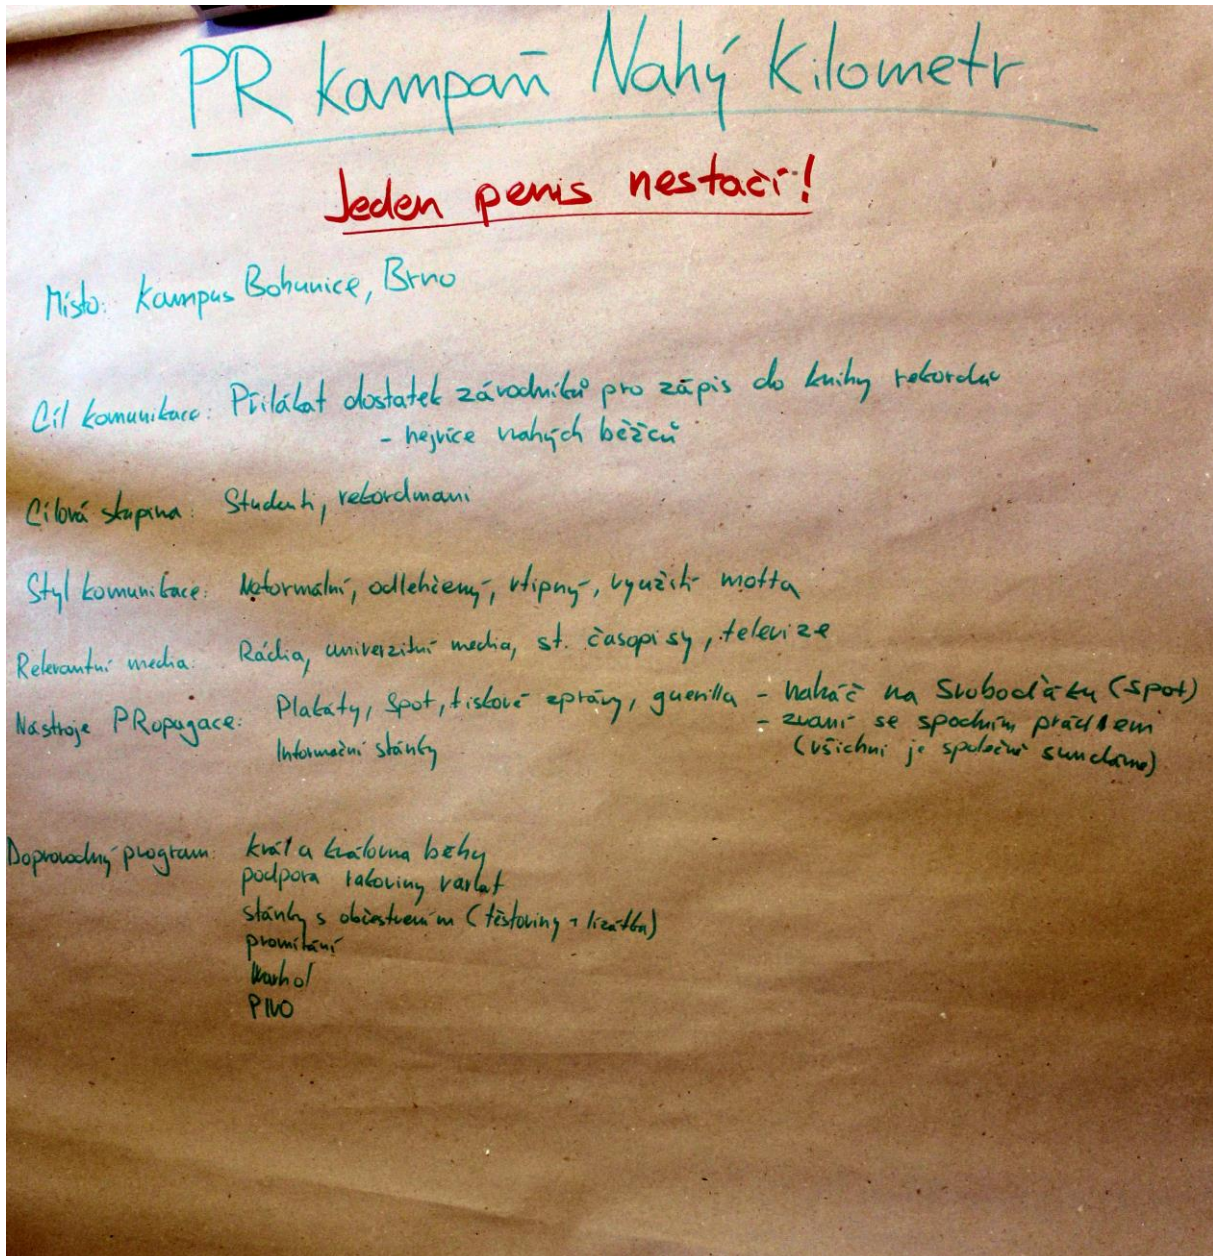 PR kampaň Nahý kilometr
Jeden penis nestačí!
Místo: Kampus Bohunice, Brno
Cíl komunikace: Přilákat dostatek závodníků pro zápis do knihy rekordů
- nejvíce nahých běžců
Cílová skupina: Studenti, rekordmani
Styl komunikace: Neformální, odlehčený, vtipný, využití motta
Relevantní media: Rádia, univerzitní media, st. časopisy, televize
Nástroje PRopagace: Plakáty, Spot, tiskové zprávy, guerilla - naháč na Svoboďáku (spot)
- zvaní se spodním prádlem
Informační stánky
(všichni je společně sundáme)
Doprovodný program: král a královna běhu
podpora rakoviny varlat
stánky s občerstvením (těstoviny + lízátka)
promítání
Warhol
PIVO